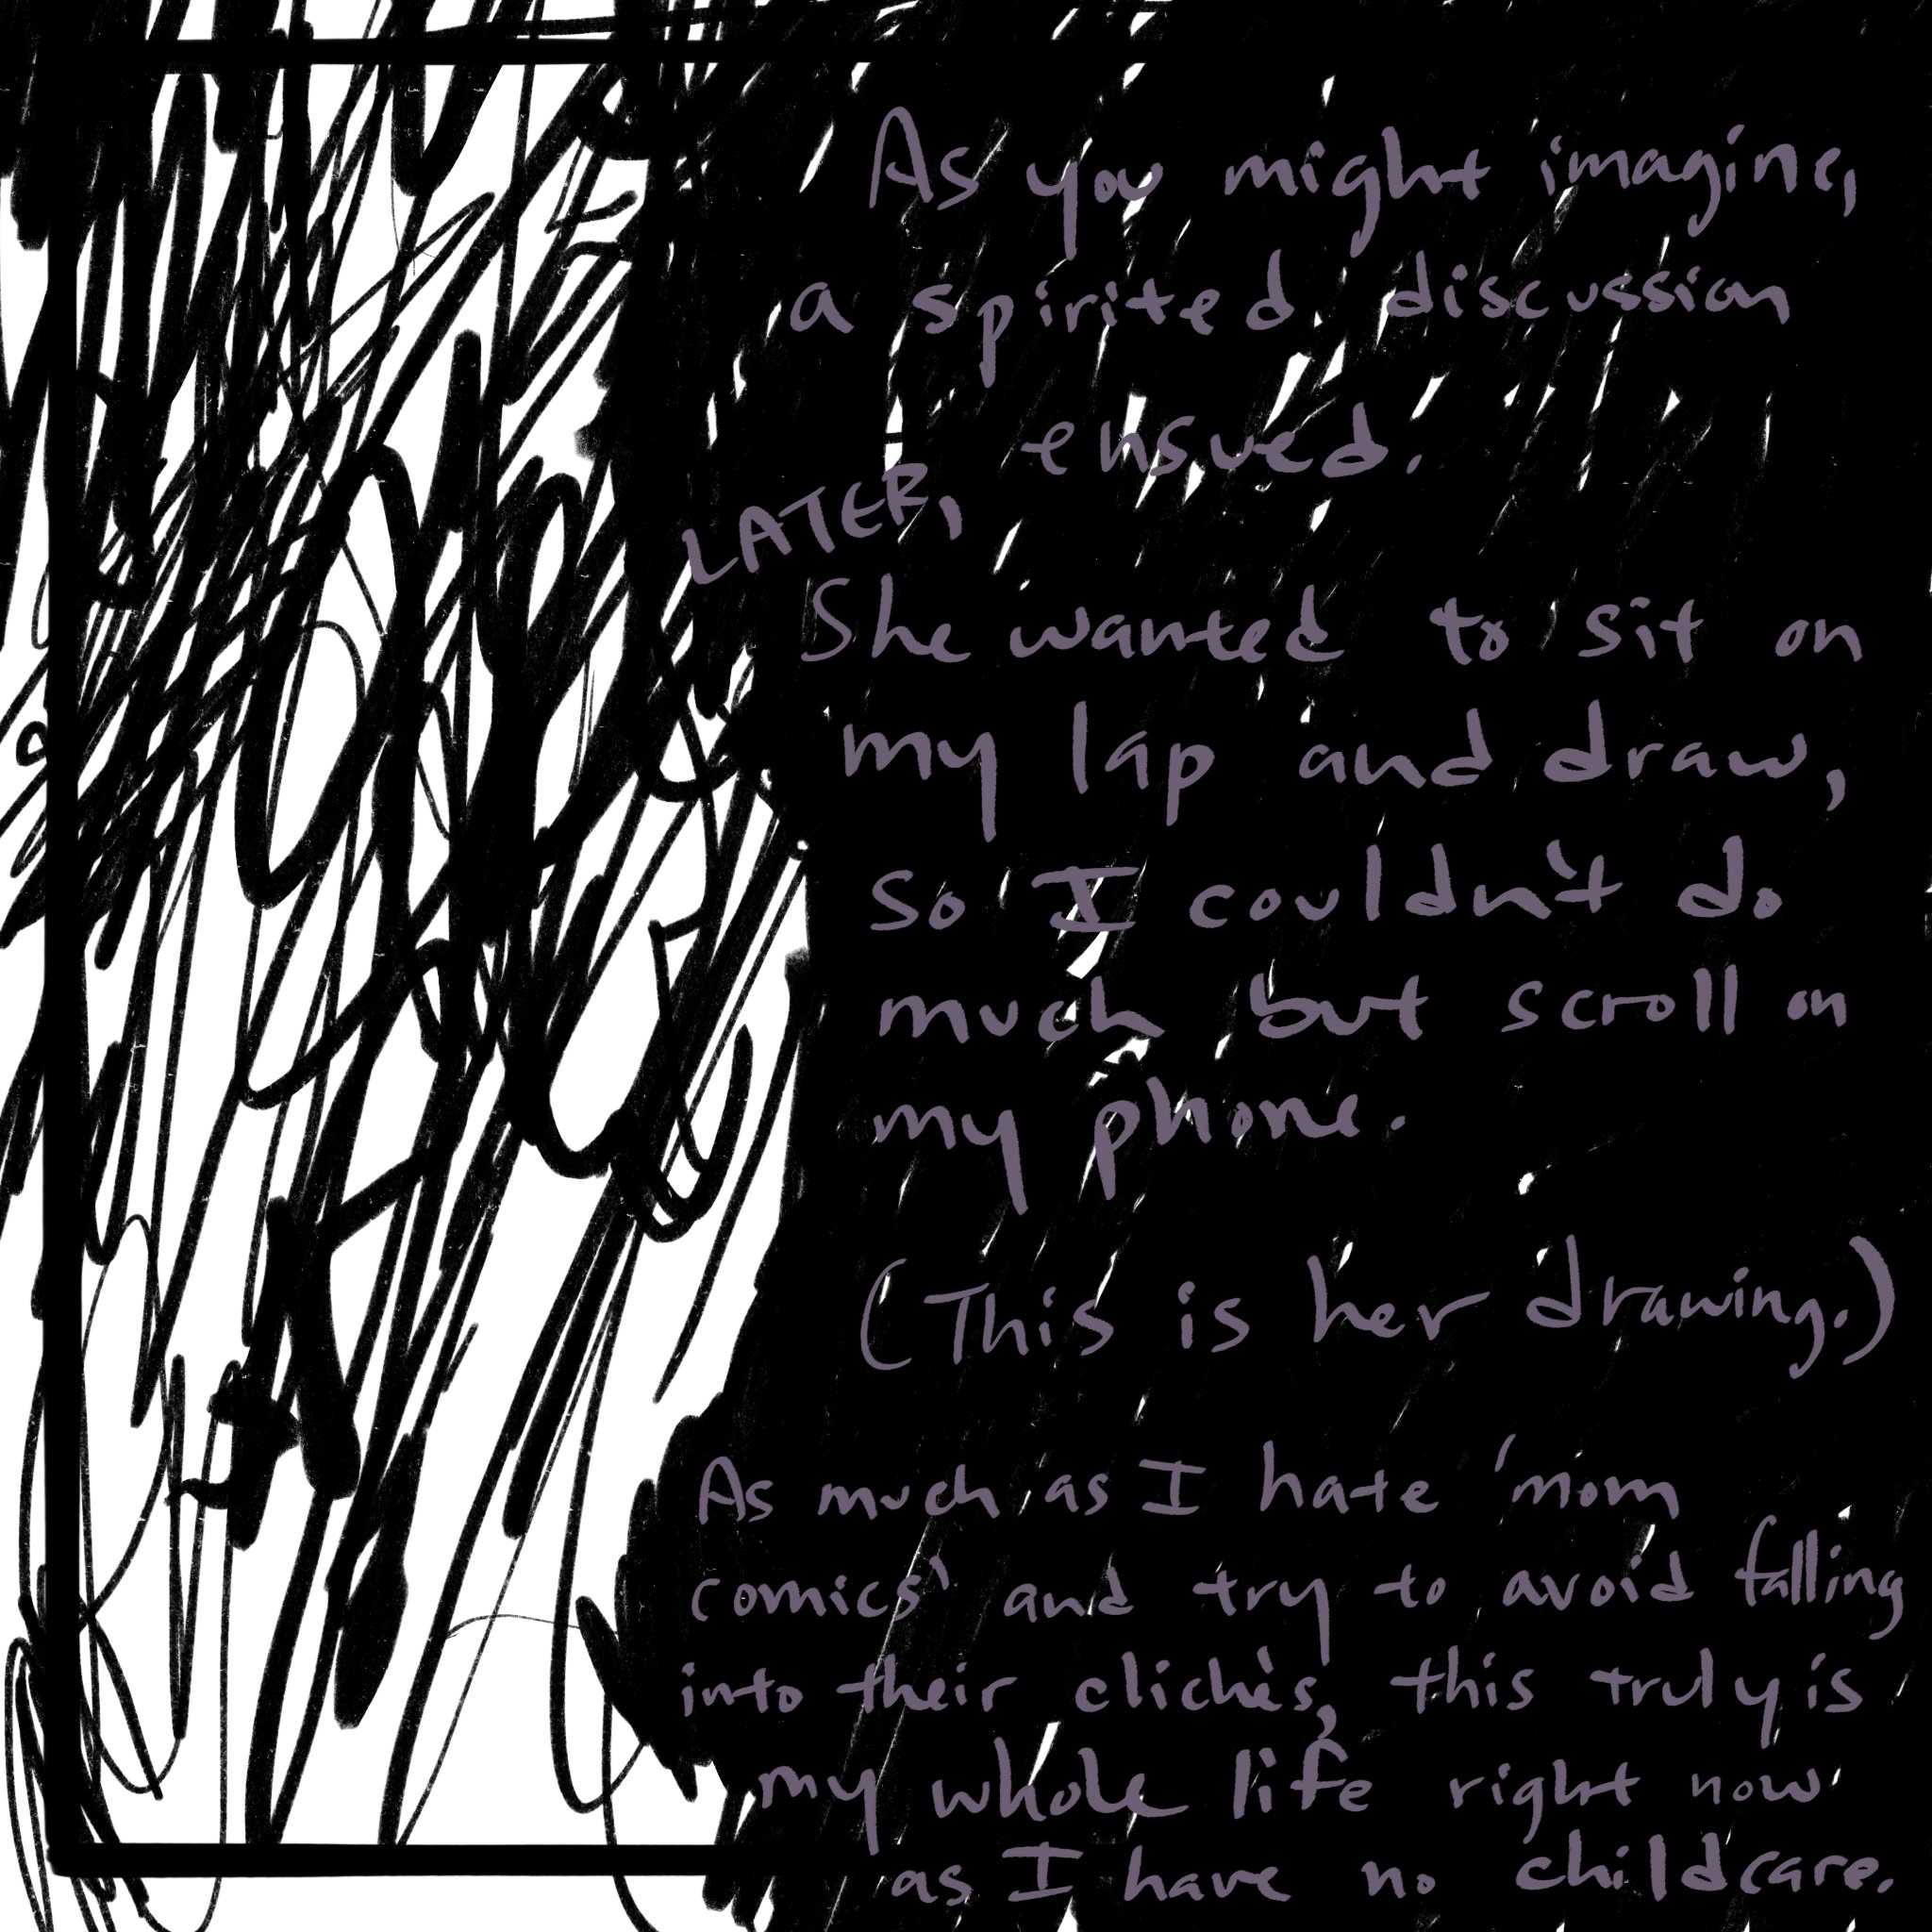 As you might imagine,
a spirited discussion
ensued.
LATER,
She wanted to sit on
my lap and draw,
so I couldn't do
much but scroll on
my phone.
(This is her drawing.)
As much as I hate 'mom
comics' and try to avoid falling
into their clichès, this truly is
my whole life right now
as I have no childcare.